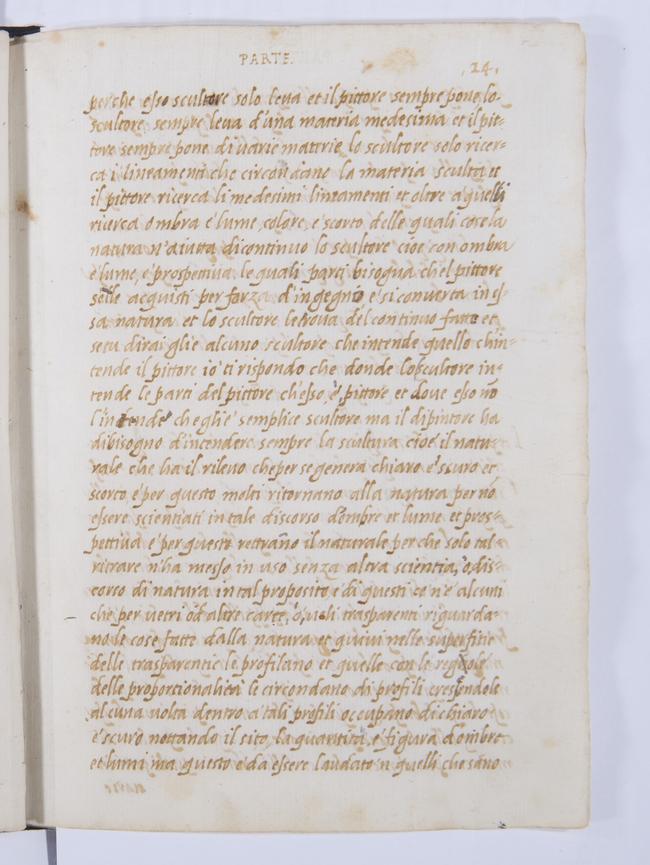 PARTE.
.24.
perche esso scultore solo leua et il pittore sempre pone, lo
scultore sempre leua d'una materia medesima et il pit-
tore sempre pone di uarie matterie, lo scultore solo ricer-
ca i lineamenti che circondano la materia sculta et
il pittore ricerca li medesimi lineamenti et oltre a quelli
ricerca ombra e lume, colore, e scorto delle quali cose la
natura n'aiuta di continuo lo scultore cioè con ombra
e lume, e prospettiua, le quali parti bisogna ch'el pittore
selle acquisti per forza d'ingegnio e si conuerta in es-
sa natura et lo scultore le troua del continuo fatte et
se tu dirai gli è alcuno scultore che intende quello ch'in-
tende il pittore io ti rispondo che donde lo scultore in-
tende le parti del pittore ch'esso, è pittore et doue esso nō
l'intende ch'egli è semplice scultore ma il dipintore ha
di bisogno d'intendere sempre la scultura cioè il natu-
rale che ha il rileuo che per se genera chiaro e scuro et
scorto e per questo molti ritornano alla natura per nō
essere scientiati in tale discorso d'ombre et lume et pros-
pettiua e per questo rettrano il naturale perche solo tal
ritrare n'ha messo in uso senza altra scientia, o dis-
corso di natura in tal proposito e di questi ce n'è alcuni
che per uetri od altre carte, o ueli trasparenti riguarda-
no le cose fatte dalla natura et quiui nelle superfitie
delle trasparentie le profilano et quelle con le regole
delle proportionalità le circondano di profili crescendole
alcuna uolta dentro a tali profili occupano di chiaro
e scuro nottando il sito, la quantità, e figura d'ombre
et lumi ma questo e da essere laudato n quelli che sano